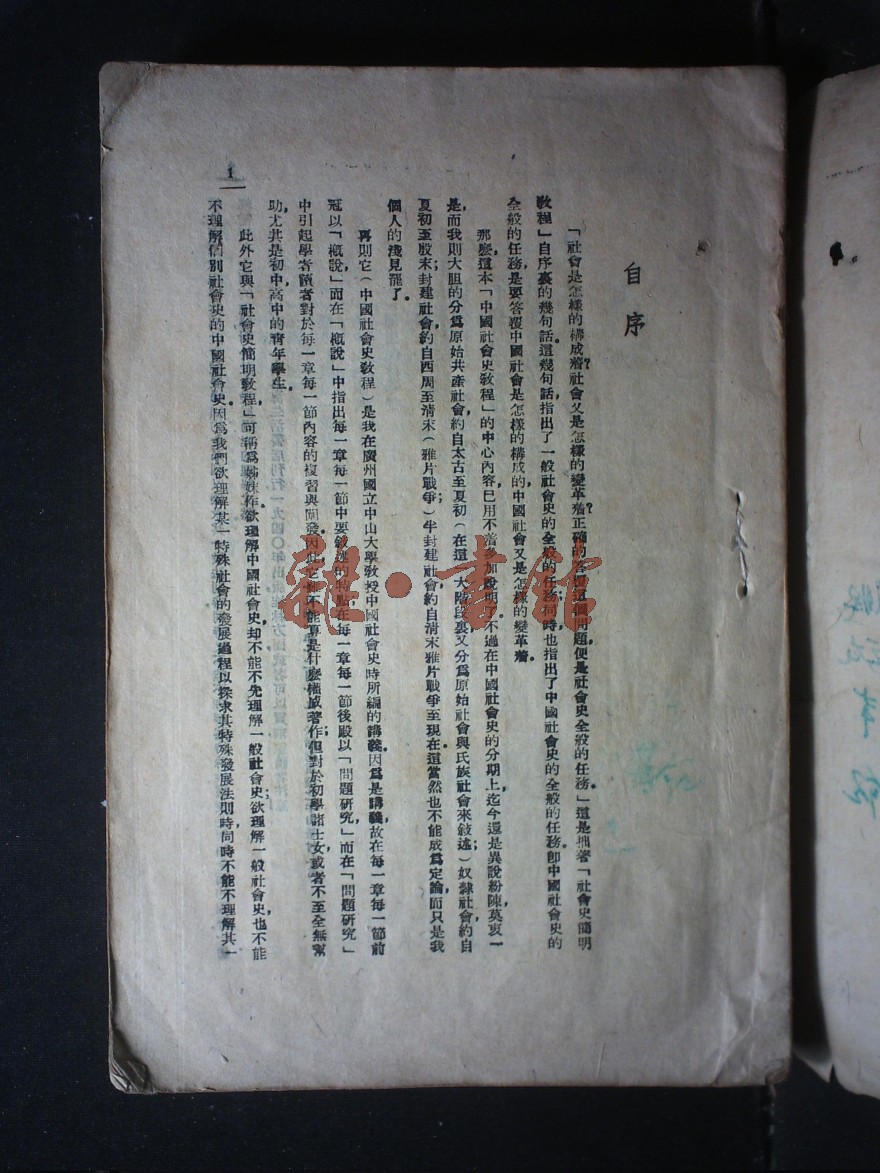 自序
「社會是怎樣的構成着？社會又是怎樣的變革着？正確的答覆這個問題，便是社會史全般的任務。」這是拙著「社會史簡明
敎程」自序裏的幾句話。這幾句話，指出了一般社會史的全般的任務，同時也指出了中國社會史的全般的任務。卽中國社會史的
全般的任務，是要答覆中國社會是怎樣的構成的，中國社會又是怎樣的變革着。
那麽，這本「中國社會史敎程」的中心內容，已用不着多加說明了。不過在中國社會史的分期上，迄今還是異說紛陳，莫衷一
是，而我則大胆的分爲原始共產社會，約自太古至夏初（在這一大階段裏，又分爲原始社會與氏族社會來敍述）；奴隸社會約自
夏初至殷末；封建社會，約自西周至清末（雅片戰爭）；半封建社會，約自清末雅片戰爭至現在。這當然也不能成爲定論，而只是我
個人的淺見罷了。
再則，它（中國社會史敎程）是我在廣州國立中山大學敎授中國社會史時所編的講義。因爲是講義，故在每一章每一節前
冠以「槪說」，而在「槪說」中指出每一章每一節中要敍述的特點；在每一章每一節後殿以「問題研究」，而在「問題研究」
中引起學者讀者對於每一章每一節內容的複習與闡發。因此，它雖不能算是什麽權威著作，但對於初學諸士女，或者不至全無幫
助，尤其是初中，高中的靑年學生。
此外，它與「社會史簡明敎程」可稱爲姊妹作。欲理解中國社會史，却不能不先理解一般社會史；欲理解一般社會史，也不能
不理解個別社會史的中國社會史。因爲我們欲理解某一特殊社會的發展過程，以探求其特殊發展法則時，同時不能不理解其一
1
雜·書館